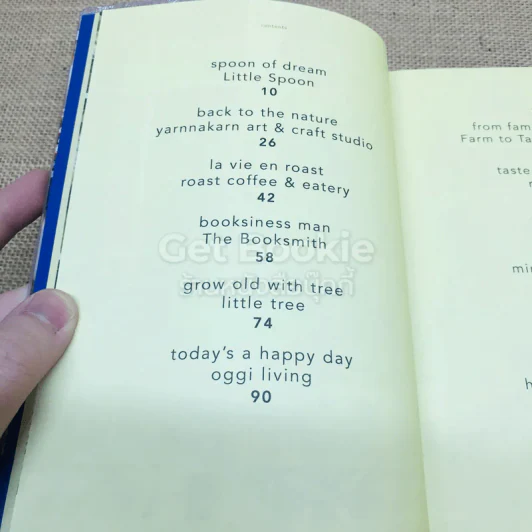 contents
spoon of dream
Little Spoon
10
back to the nature
yarnnakarn art & craft studio
26
la vie en roast
roast coffee & eatery
42
booksiness man
The Booksmith
58
grow old with tree
little tree
74
today's a happy day
oggi living
90
from fam
Farm to Ta
taste
r
min
h
Get Bookie
ร้านหนังสือบุ๊กกี้